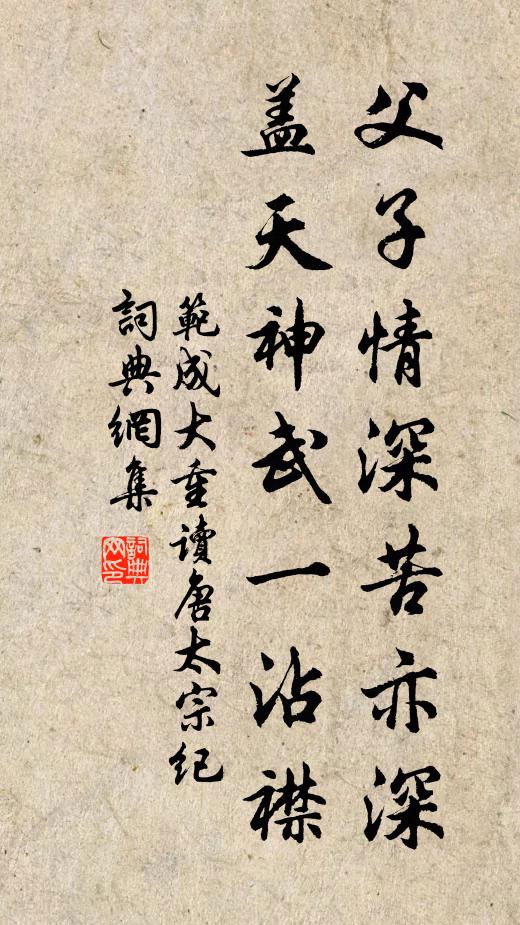 父子情深苦亦深
盖天神武一沾襟
範成大重讀唐太宗紀
詞典網集
詞典网印